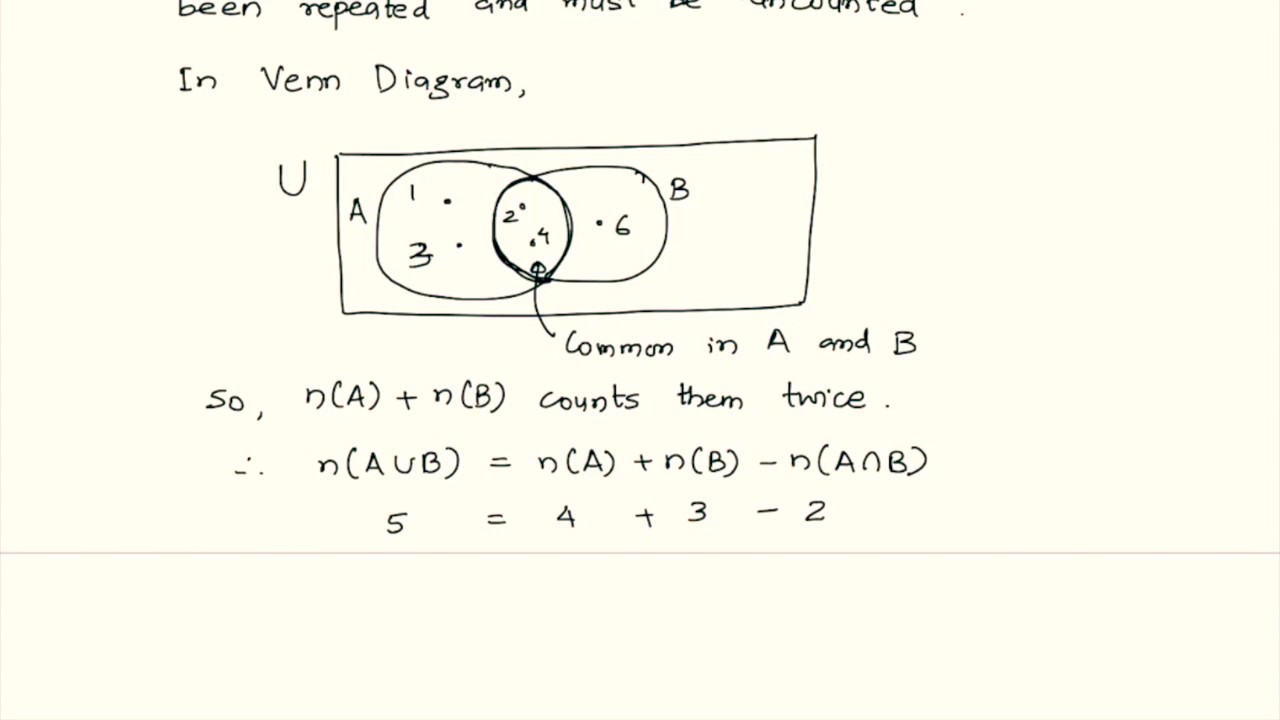 been repeated and must be uncounted.
In Venn Diagram,
U
A
1
3
2
4
6
B
Common in A and B
So, n(A) + n(B) counts them twice.
∴ n(A∪B) = n(A) + n(B) - n(A∩B)
5 = 4 + 3 - 2